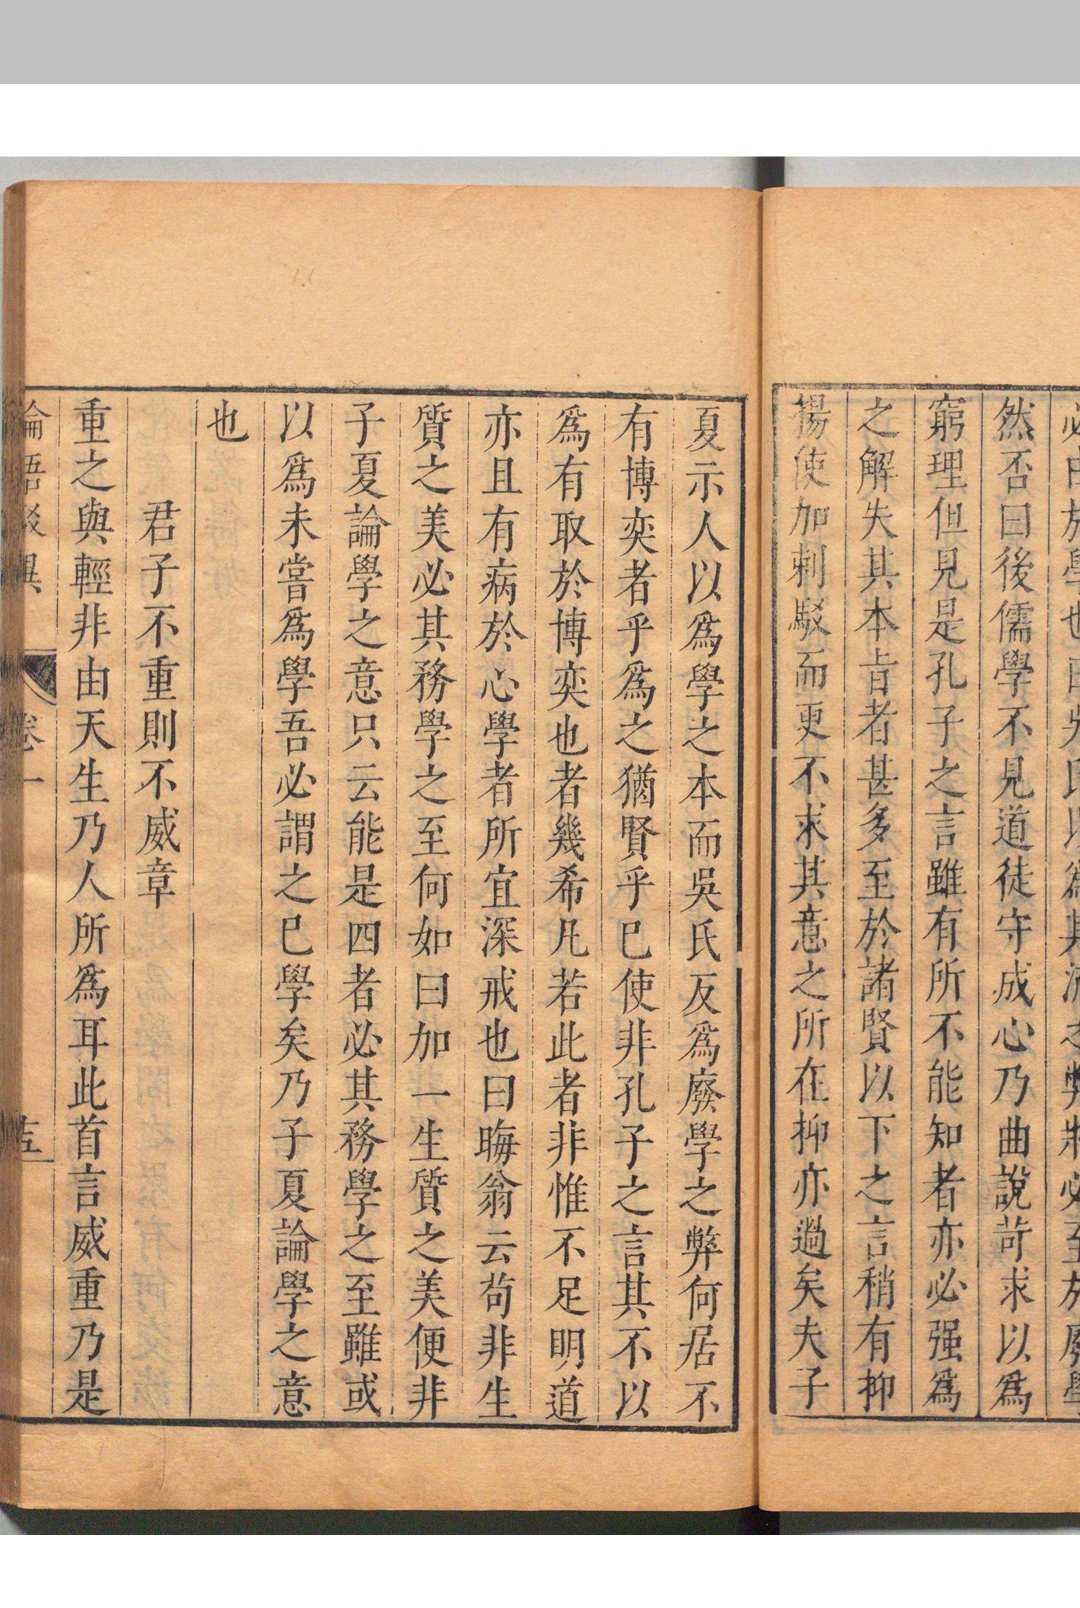 必由於學也曰吳氏以爲其流之弊將必至於廢學
然否曰後儒學不見道徒守成心乃曲說苛求以爲
窮理但見是孔子之言雖有所不能知者亦必强爲
之解失其本旨者甚多至於諸賢以下之言稍有抑
揚使加刺駁而更不求其意之所在抑亦過矣夫子
夏示人以爲學之本而吳氏反爲廢學之弊何居不
有博奕者乎爲之猶賢乎已使非孔子之言其不以
爲有取於博奕也者幾希凡若此者非惟不足明道
亦且有病於心學者所宜深戒也曰晦翁云苟非生
質之美必其務學之至何如曰加一生質之美便非
子夏論學之意只云能是四者必其務學之至雖或
以爲未嘗爲學吾必謂之已學矣乃子夏論學之意
也
君子不重則不威章
重之與輕非由天生乃人所爲耳此首言威重乃是
論語駁異
卷一
十五